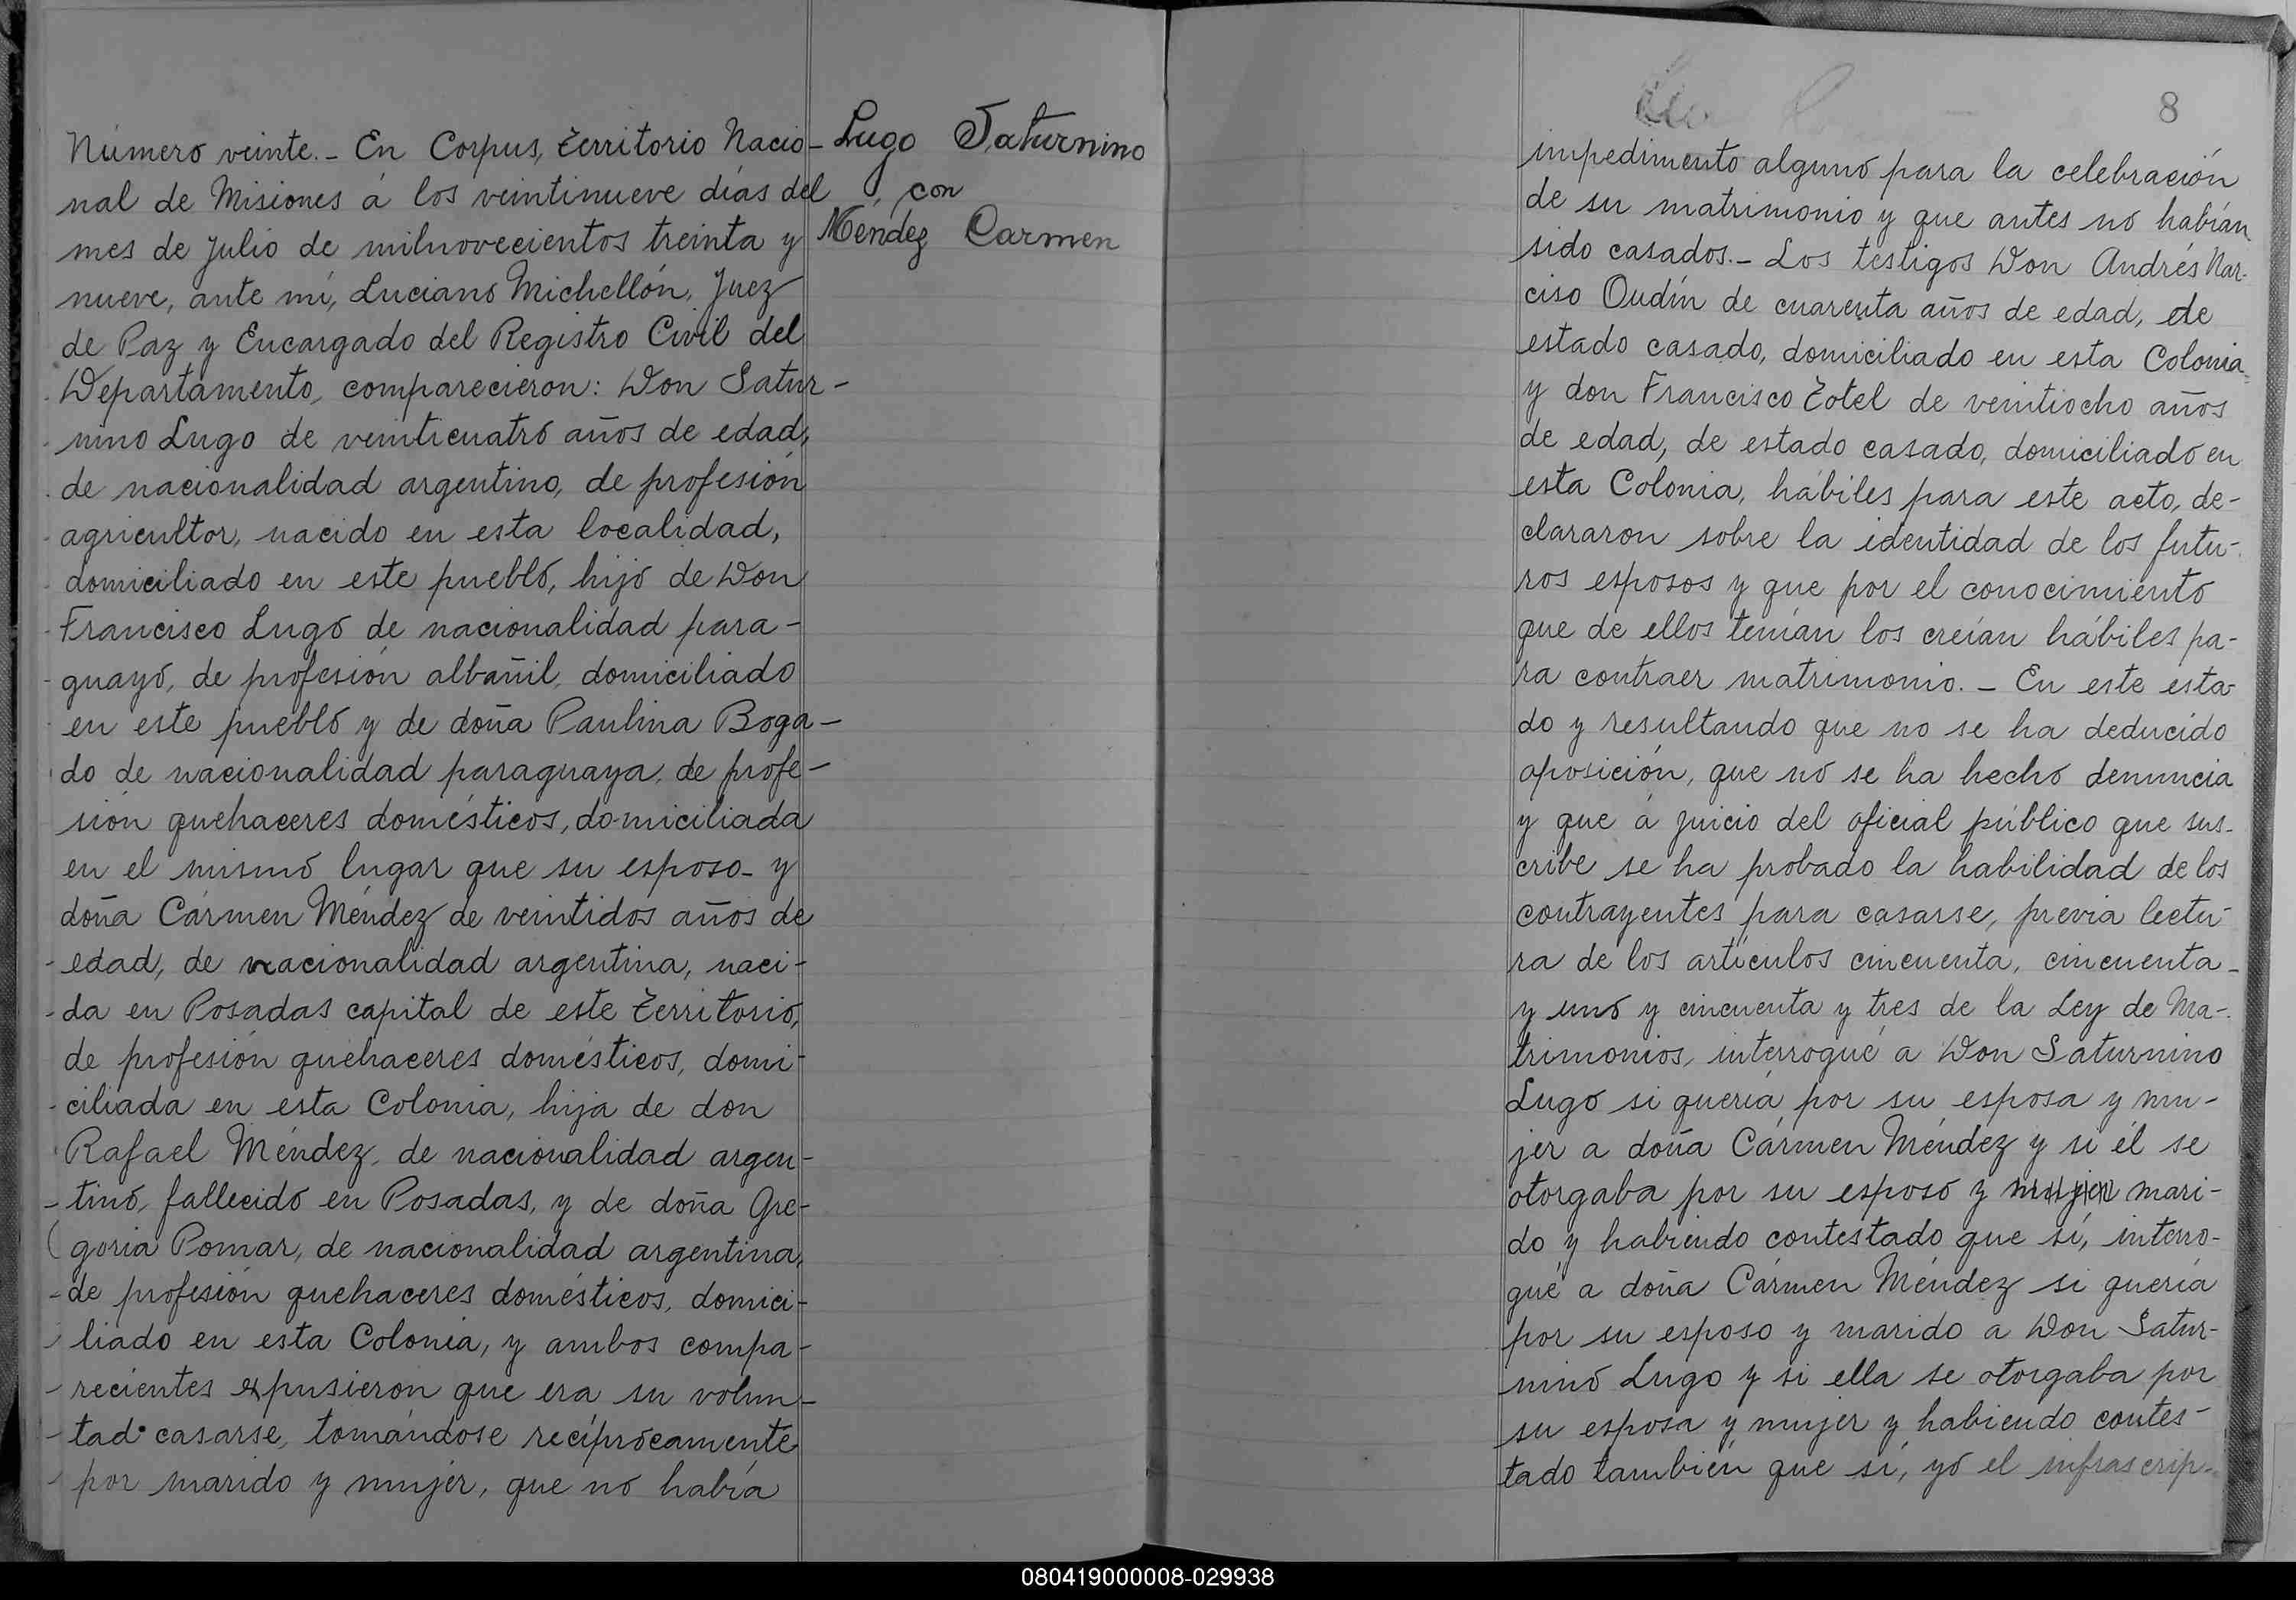 Número veinte.- En Corpus, Territorio Nacio-
nal de Misiones á los veintinueve días del
mes de Julio de milnovecientos treinta y
nueve, ante mí, Luciano Michellón, Juez
de Paz y Encargado del Registro Civil del
Departamento, comparecieron: Don Satur-
nino Lugo de veinticuatro años de edad,
de nacionalidad argentino, de profesión
agricultor, nacido en esta localidad,
domiciliado en este pueblo, hijo de Don
Francisco Lugo de nacionalidad para-
guayo, de profesión albañil, domiciliado
en este pueblo y de doña Paulina Boga-
do de nacionalidad paraguaya, de profe-
sión quehaceres domésticos, domiciliada
en el mismo lugar que su esposo - y
doña Cármen Méndez de veintidos años de
edad, de nacionalidad argentina, naci-
da en Posadas capital de este Territorio,
de profesión quehaceres domésticos, domi-
ciliada en esta Colonia, hija de don
Rafael Méndez, de nacionalidad argen-
tino, fallecido en Posadas, y de doña Gre-
goria Pomar, de nacionalidad argentina,
de profesión quehaceres domésticos, domici-
liado en esta Colonia, y ambos compa-
recientes expusieron que era su volun-
tad casarse, tomándose recíprocamente
por marido y mujer, que no había
Lugo Saturnino
con
Méndez Carmen
8
impedimento alguno para la celebración
de su matrimonio y que antes no habían
sido casados.- Los testigos Don Andrés Nar-
ciso Oudín de cuarenta años de edad, de
estado casado, domiciliado en esta Colonia
y don Francisco Zotel de veintiocho años
de edad, de estado casado, domiciliado en
esta Colonia, hábiles para este acto, de-
clararon sobre la identidad de los futu-
ros esposos y que por el conocimiento
que de ellos tenían los creían hábiles pa-
ra contraer matrimonio. - En este esta-
do y resultando que no se ha deducido
oposición, que no se ha hecho denuncia
y que á juicio del oficial público que sus-
cribe se ha probado la habilidad de los
contrayentes para casarse, previa lectu-
ra de los artículos cincuenta, cincuenta
y uno y cincuenta y tres de la Ley de Ma-
trimonios, interrogué a Don Saturnino
Lugo si quería por su esposa y mu-
jer a doña Cármen Méndez y si él se
otorgaba por su esposo y mujer mari-
do y habiendo contestado que sí, interro-
gué a doña Cármen Méndez si quería
por su esposo y marido a Don Satur-
nino Lugo y si ella se otorgaba por
su esposa y mujer y habiendo contes-
tado también que sí, yó el infrascrip-
080419000008-029938